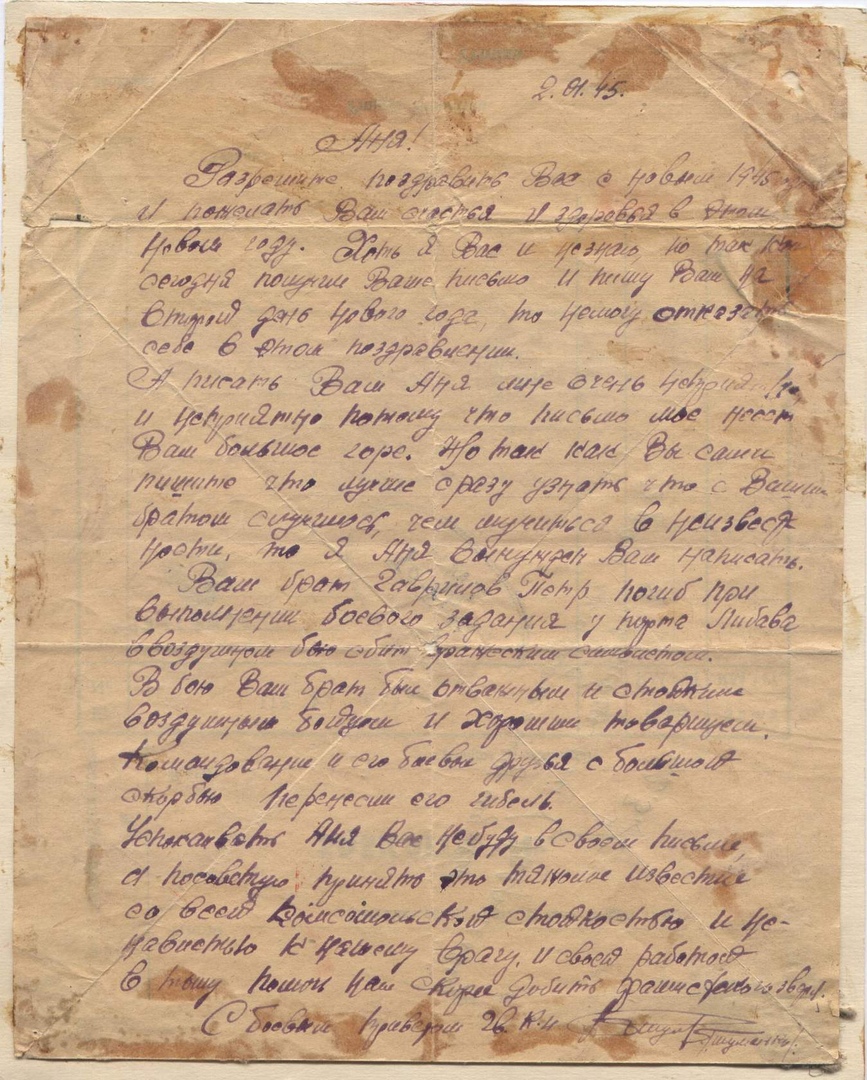 2.01.45.
Аня!
Разрешите поздравить Вас с новым 1945
и пожелать Вам счастья и здоровья в этом
новом году. Хоть я Вас и незнаю, но так как
сегодня получил Ваше письмо и пишу Вам на
второй день нового года, то немогу отказать
себе в этом поздравлении.
А писать Вам Аня мне очень неприятно
и неприятно потому что письмо мое несет
Вам большое горе. Но так как Вы сами
пишите что лучше сразу узнать что с Вашим
братом случилось, чем мучиться в неизвест
ности, то я Аня вынужден Вам написать.
Ваш брат Гаврилов Петр погиб при
выполнении боевого задания у порта Либава
в воздушном бою сбит вражеским самолетом.
В бою Ваш брат был отважным и стойким
воздушным бойцом и хорошим товарищем.
Командование и его боевые друзья с большой
скорбью перенесли его гибель.
Успокаивать Аня Вас небуду в своем письме,
а посоветую принять это тяжолое известие
со всей комсомольской стойкостью и не-
навистью к нашему врагу. и своей работой
в тылу помочь нам скорее добить фашистского зверя.
С боевым приветом Гв. к-н